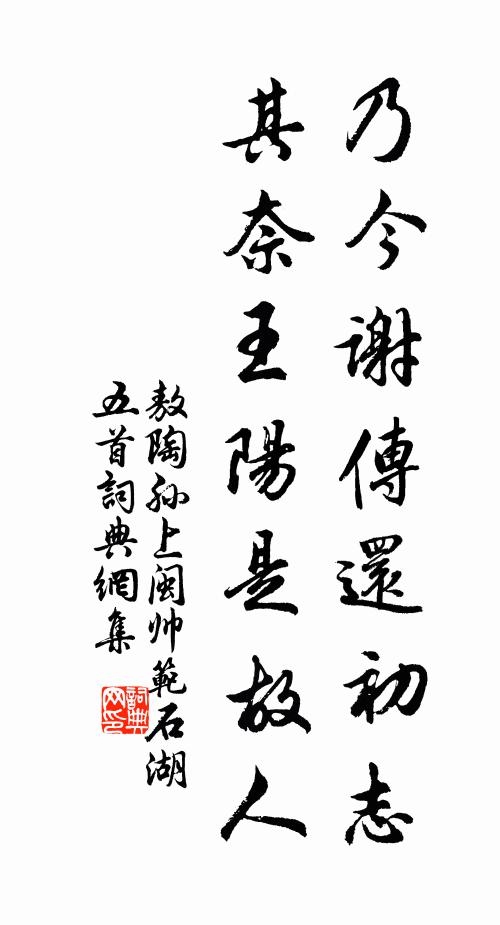 乃今謝傅還初志
其奈王陽是故人
敖陶孙上閩帅範石湖
五首詞典網集
詞典网印